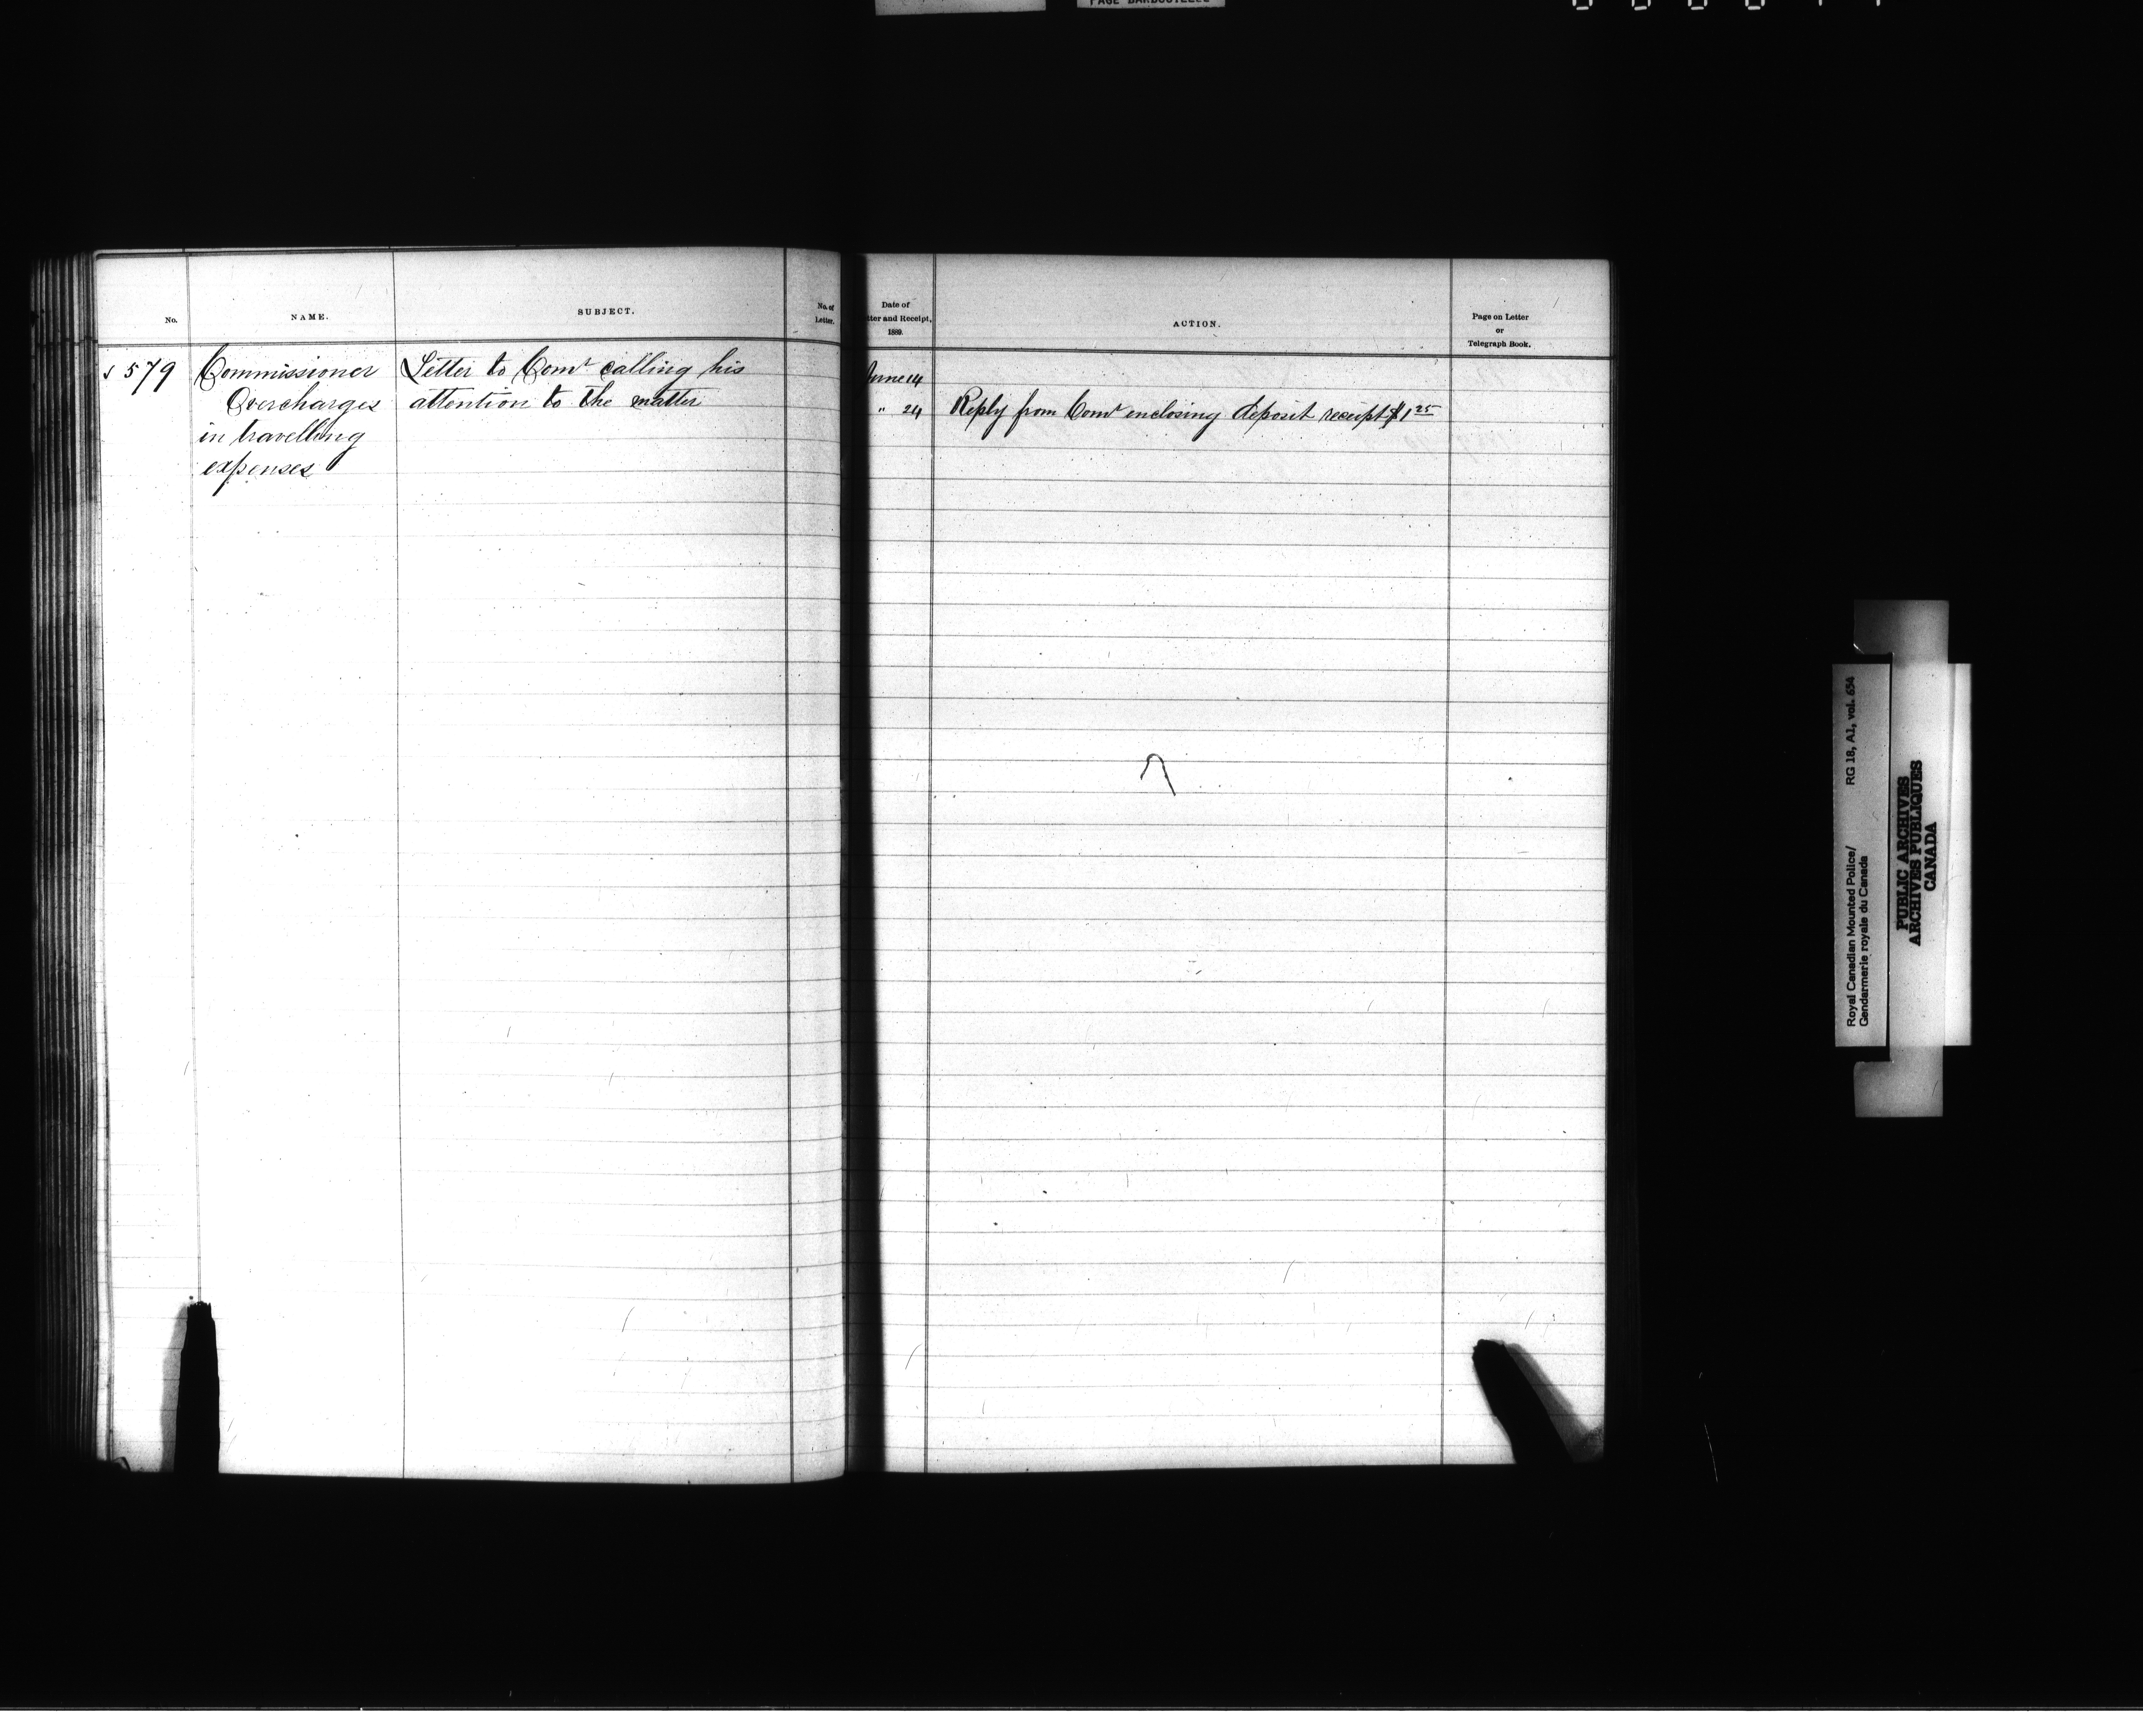 PAGE BARBOUILLÉE
No.
NAME.
SUBJECT.
No. of
Letter.
Date of
tter and Receipt,
1889.
ACTION.
Page on Letter
or
Telegraph Book.
579
Commissioner
Overcharges
in travelling
expenses
Letter to Comr calling his
attention to the matter
June 14
" 24
Reply from Comr enclosing deposit receipt $1 25
Royal Canadian Mounted Police/ RG 18, A1, vol. 654
Gendarmerie royale du Canada
PUBLIC ARCHIVES
ARCHIVES PUBLIQUES
CANADA